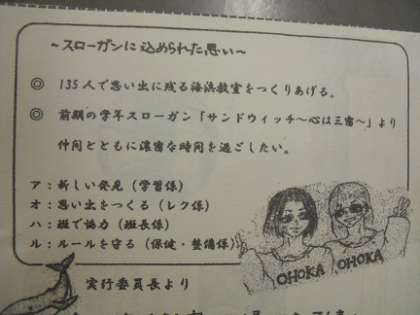 ～スローガンに込められた思い～
◎ 135人で思い出に残る海浜教室をつくりあげる。
◎ 前期の学年スローガン「サンドウィッチ～心は三密～」より
仲間とともに濃密な時間を過ごしたい。
ア：新しい発見（学習係）
オ：思い出をつくる（レク係）
ハ：班で協力（班長係）
ル：ルールを守る（保健・整備係）
OHOKA OHOKA
実行委員長より